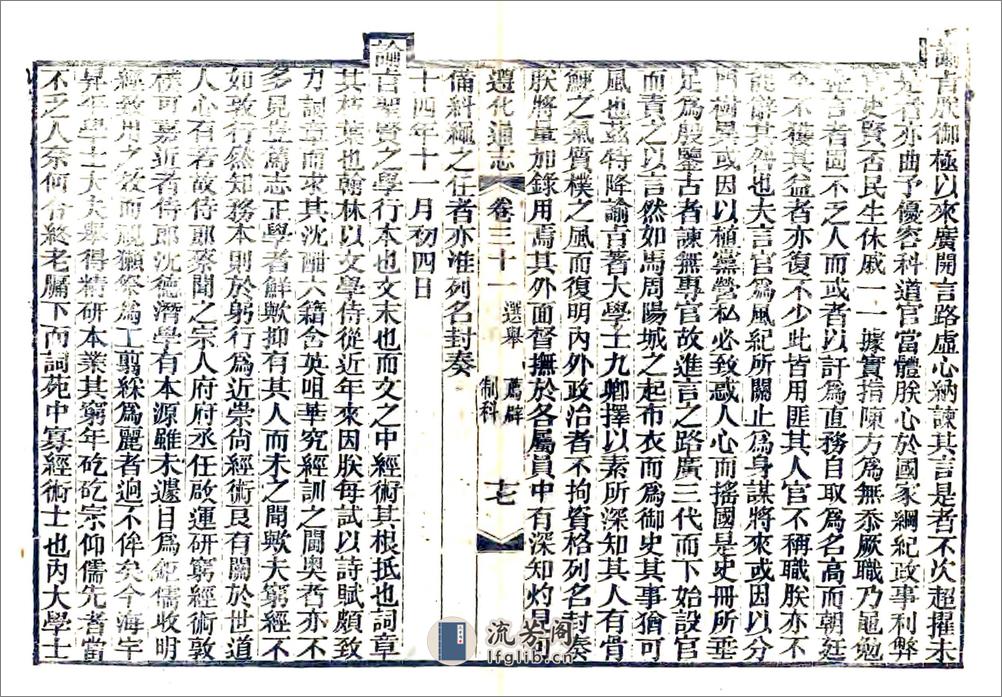 諭旨朕御極以來廣開言路虛心納諫其言是者不次超擢未
是者亦曲予優容科道官當體朕心於國家綱紀政事利弊
官吏賢否民生休戚一一據實指陳方為無忝厥職乃黽勉
進言者固不乏人而或者以訐為直務自取為名高而朝廷
全不獲其益者亦復不少此皆用匪其人官不稱職朕亦不
能辭其咎也夫言官為風紀所關止為身謀將來或因以分
門樹异或因以植黨營私必致惑人心而搖國是史冊所垂
足為殷鑒古者諫無專官故進言之路廣三代而下始設官
而責之以言然如馬周陽城之起布衣而為御史其事猶可
風也茲特降諭旨著大學士九卿擇以素所深知其人有骨
鯁之氣質樸之風而復明內外政治者不拘資格列名封奏
朕將量加錄用焉其外面督撫於各屬員中有深知灼見可
遵化通志
卷三十一 選舉 薦辟 制科
十七
備糾繩之任者亦准列名封奏
十四年十一月初四日
諭旨聖賢之學行本也文末也而文之中經術其根抵也詞章
其枝葉也翰林以文學侍從近年來因朕每試以詩賦頗致
力詞章而求其沈酣六籍含英咀華究經訓之閫奧者亦不
多見豈篤志正學者鮮歟抑有其人而未之聞歟夫窮經不
如敦行然知務本則於躬行為近崇尚經術良有關於世道
人心有若故侍郎蔡聞之宗人府府丞任啟運研窮經術敦
樸可嘉近者侍郎沈德潛學有本源雖未遽目為鉅儒收明
經致用之效而視獺祭為工剪綵為麗者迥不侔矣今海宇
昇平學士大夫舉得精研本業其窮年矻矻宗仰儒先者當
不乏人奈何令終老牖下而詞苑中寡經術士也內大學士
流芳阁
lfglib.cn